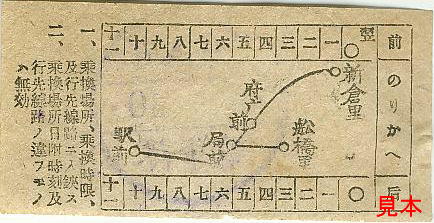 前のりかへ后
翌
一 二 三 四 五 六 七 八 九 十 十一 十二
新倉里
府庁前
船橋里
局前
駅前
一 二 三 四 五 六 七 八 九 十 十一 十二
一、乗換場所、乗換時限、
及行先線路ニ入鋏ス
二、乗換場所日附時刻及
行先線路ノ違フモノ
ハ無効
見本